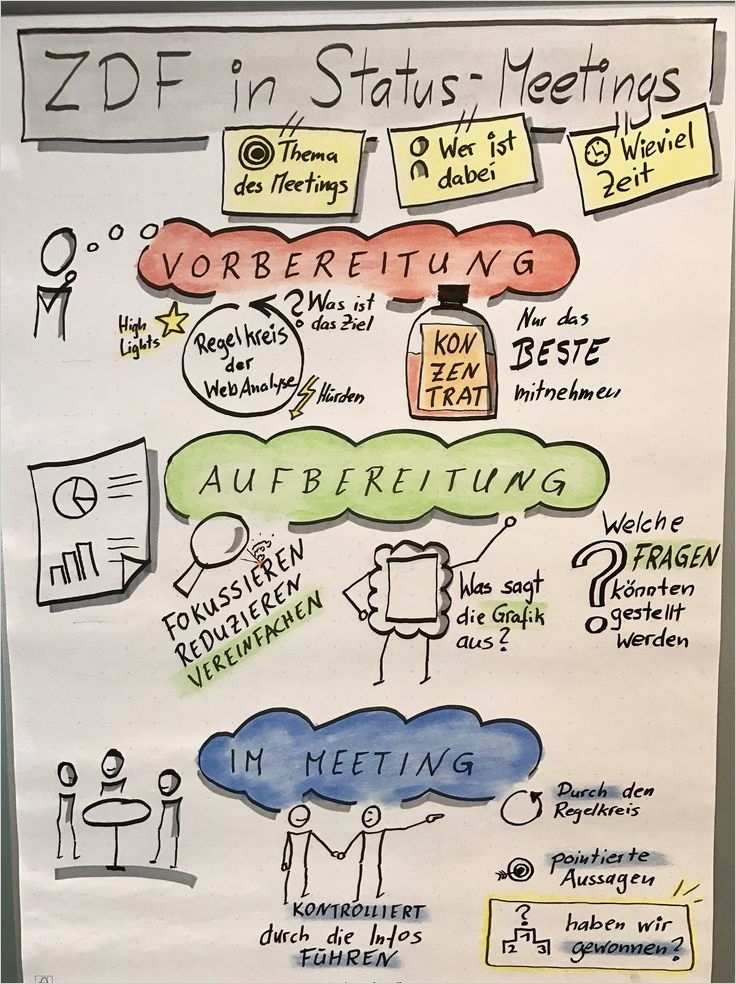 ZDF in Status-Meetings
Thema
des Meetings
Wer ist
dabei
Wieviel
Zeit
VORBEREITUNG
High
Lights
Regelkreis
der
WebAnalyse
? Was ist
das Ziel
Hürden
KON
ZEN
TRAT
Nur das
BESTE
mitnehmen
AUFBEREITUNG
FOKUSSIEREN
REDUZIEREN
VEREINFACHEN
Was sagt
die Grafik
aus?
Welche
? FRAGEN
könnten
gestellt
werden
IM MEETING
KONTROLLIERT
durch die Infos
FÜHREN
Durch den
Regelkreis
pointierte
Aussagen
?
2 1 3
haben wir
gewonnen?